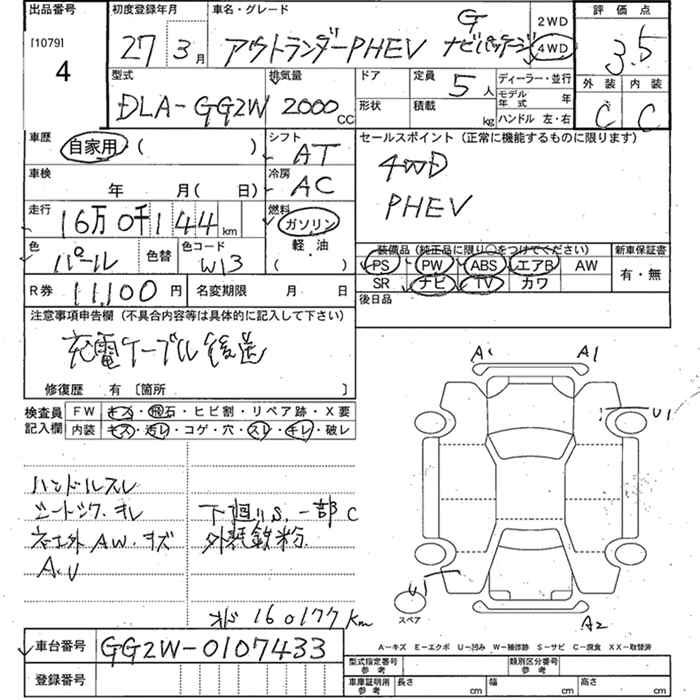 出品番号
[1079]
4
初度登録年月
27 3月
車名・グレード
アウトランダーPHEV G ナビパッケージ
2WD
4WD
評価点
3.5
外装 内装
C C
型式
DLA-GG2W
排気量
2000 CC
ドア
定員
5人
形状
積載
kg
ディーラー・並行
モデル年式 年
ハンドル 左・右
車歴
自家用 ( )
シフト
AT
車検
年 月( 日)
冷房
AC
走行
16万0千144 km
燃料
ガソリン
軽・油
( )
色
パール
色替
色コード
W13
R券 11,100 円
名変期限 月 日
セールスポイント (正常に機能するものに限ります)
4WD
PHEV
装備品 (純正品に限り○をつけてください)
PS PW ABS エアB AW
SR ナビ TV カワ
新車保証書
有・無
後日品
注意事項申告欄 (不具合内容等は具体的に記入して下さい)
充電ケーブル後送
修復歴 有 〔箇所 〕
検査員記入欄
FW キズ・飛石・ヒビ割・リペア跡・X要
内装 キズ・汚レ・コゲ・穴・スレ・キレ・破レ
ハンドルスレ
シートシワ・ヨレ
AW・キズ
A.U
下廻りS.一部C
外装鉄粉
オド 160177km
A1
A1
U1
U1
A2
スペア
A-キズ E-エクボ U-凹み W-補修跡 S-サビ C-腐食 XX-取替済
車台番号 GG2W-0107433
登録番号
型式指定番号 参考
類別区分番号 参考
車庫証明用 参考
長さ cm 幅 cm 高さ cm